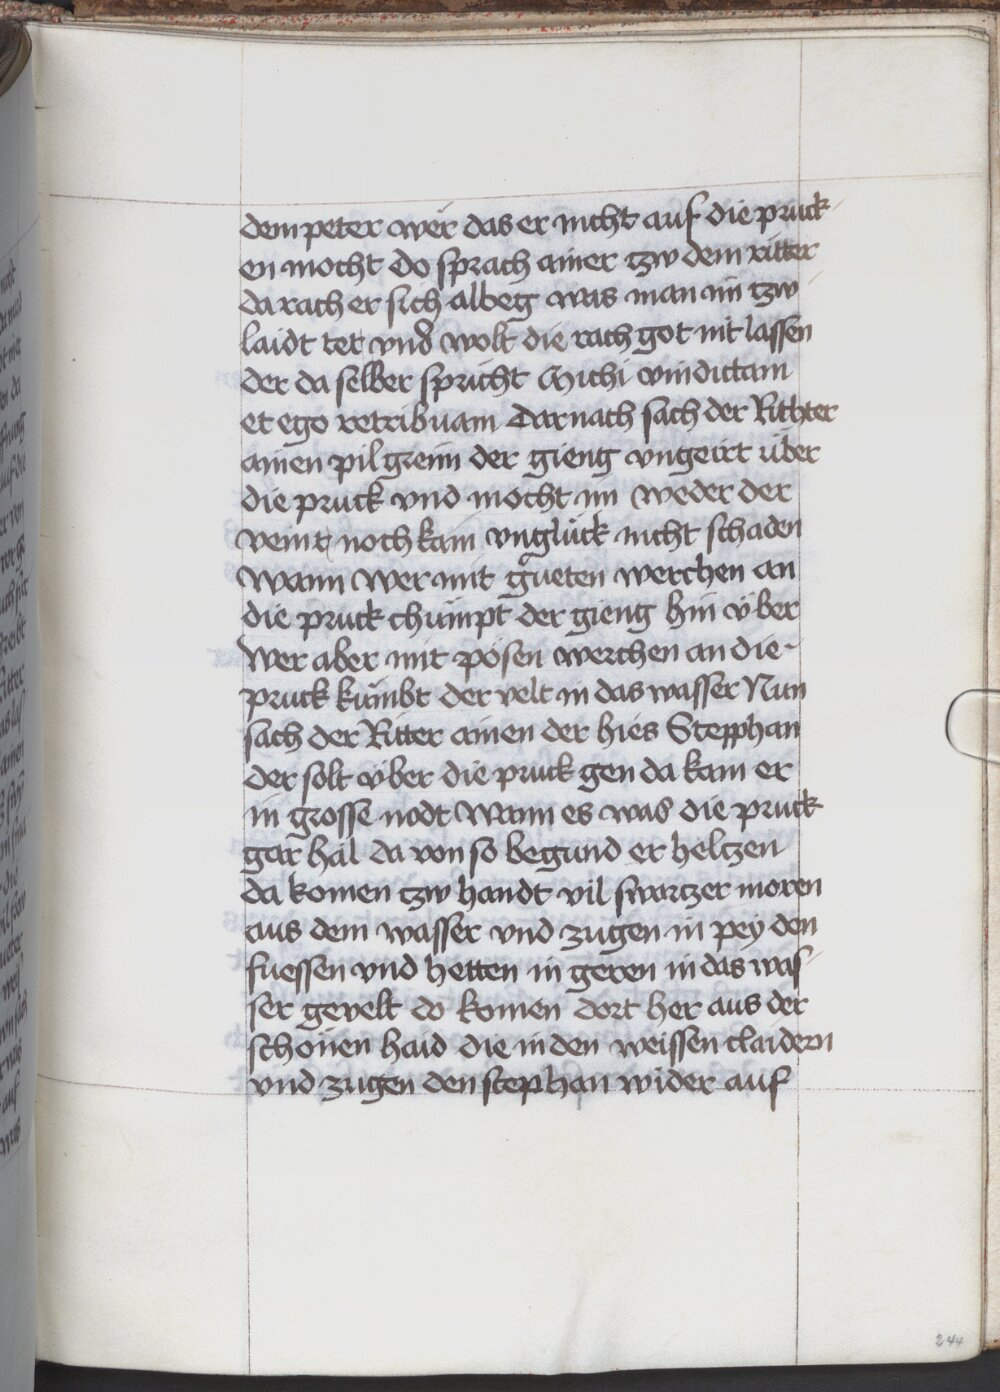 dem peter wër das er nicht auf die pruck
en mocht do sprach ainer tzw dem ritter
da rach er sich albeg was man im tzw
laidt tet vnd wolt die rach got nit lassen
der da selber spricht Michi vindictam
et ego retribuam Darnach sach der Richter
ainen pilgreim der gieng vngeirt über
die pruck vnd mocht im weder der
veint noch kain vnglück nicht schaden
Wann wer mit gueten werchen an
die pruck chümpt der gieng hin vber
Wer aber mit pösen werchen an die
pruck kümbt der velt in das wasser Nun
sach der Ritter ainen der hies Stepphan
der solt vber die pruck gen da kam er
in grosse nodt Wann es was die pruck
gar häl da von so begund er heltzen
da komen tzw handt vil swartzer moren
aus dem wasser vnd zugen in pey den
fuessen vnd hetten in geren in das was
ser gevelt do komen dort her aus der
schönen haid die in den weissen claidern
vnd zugen den stephan wider auf
244